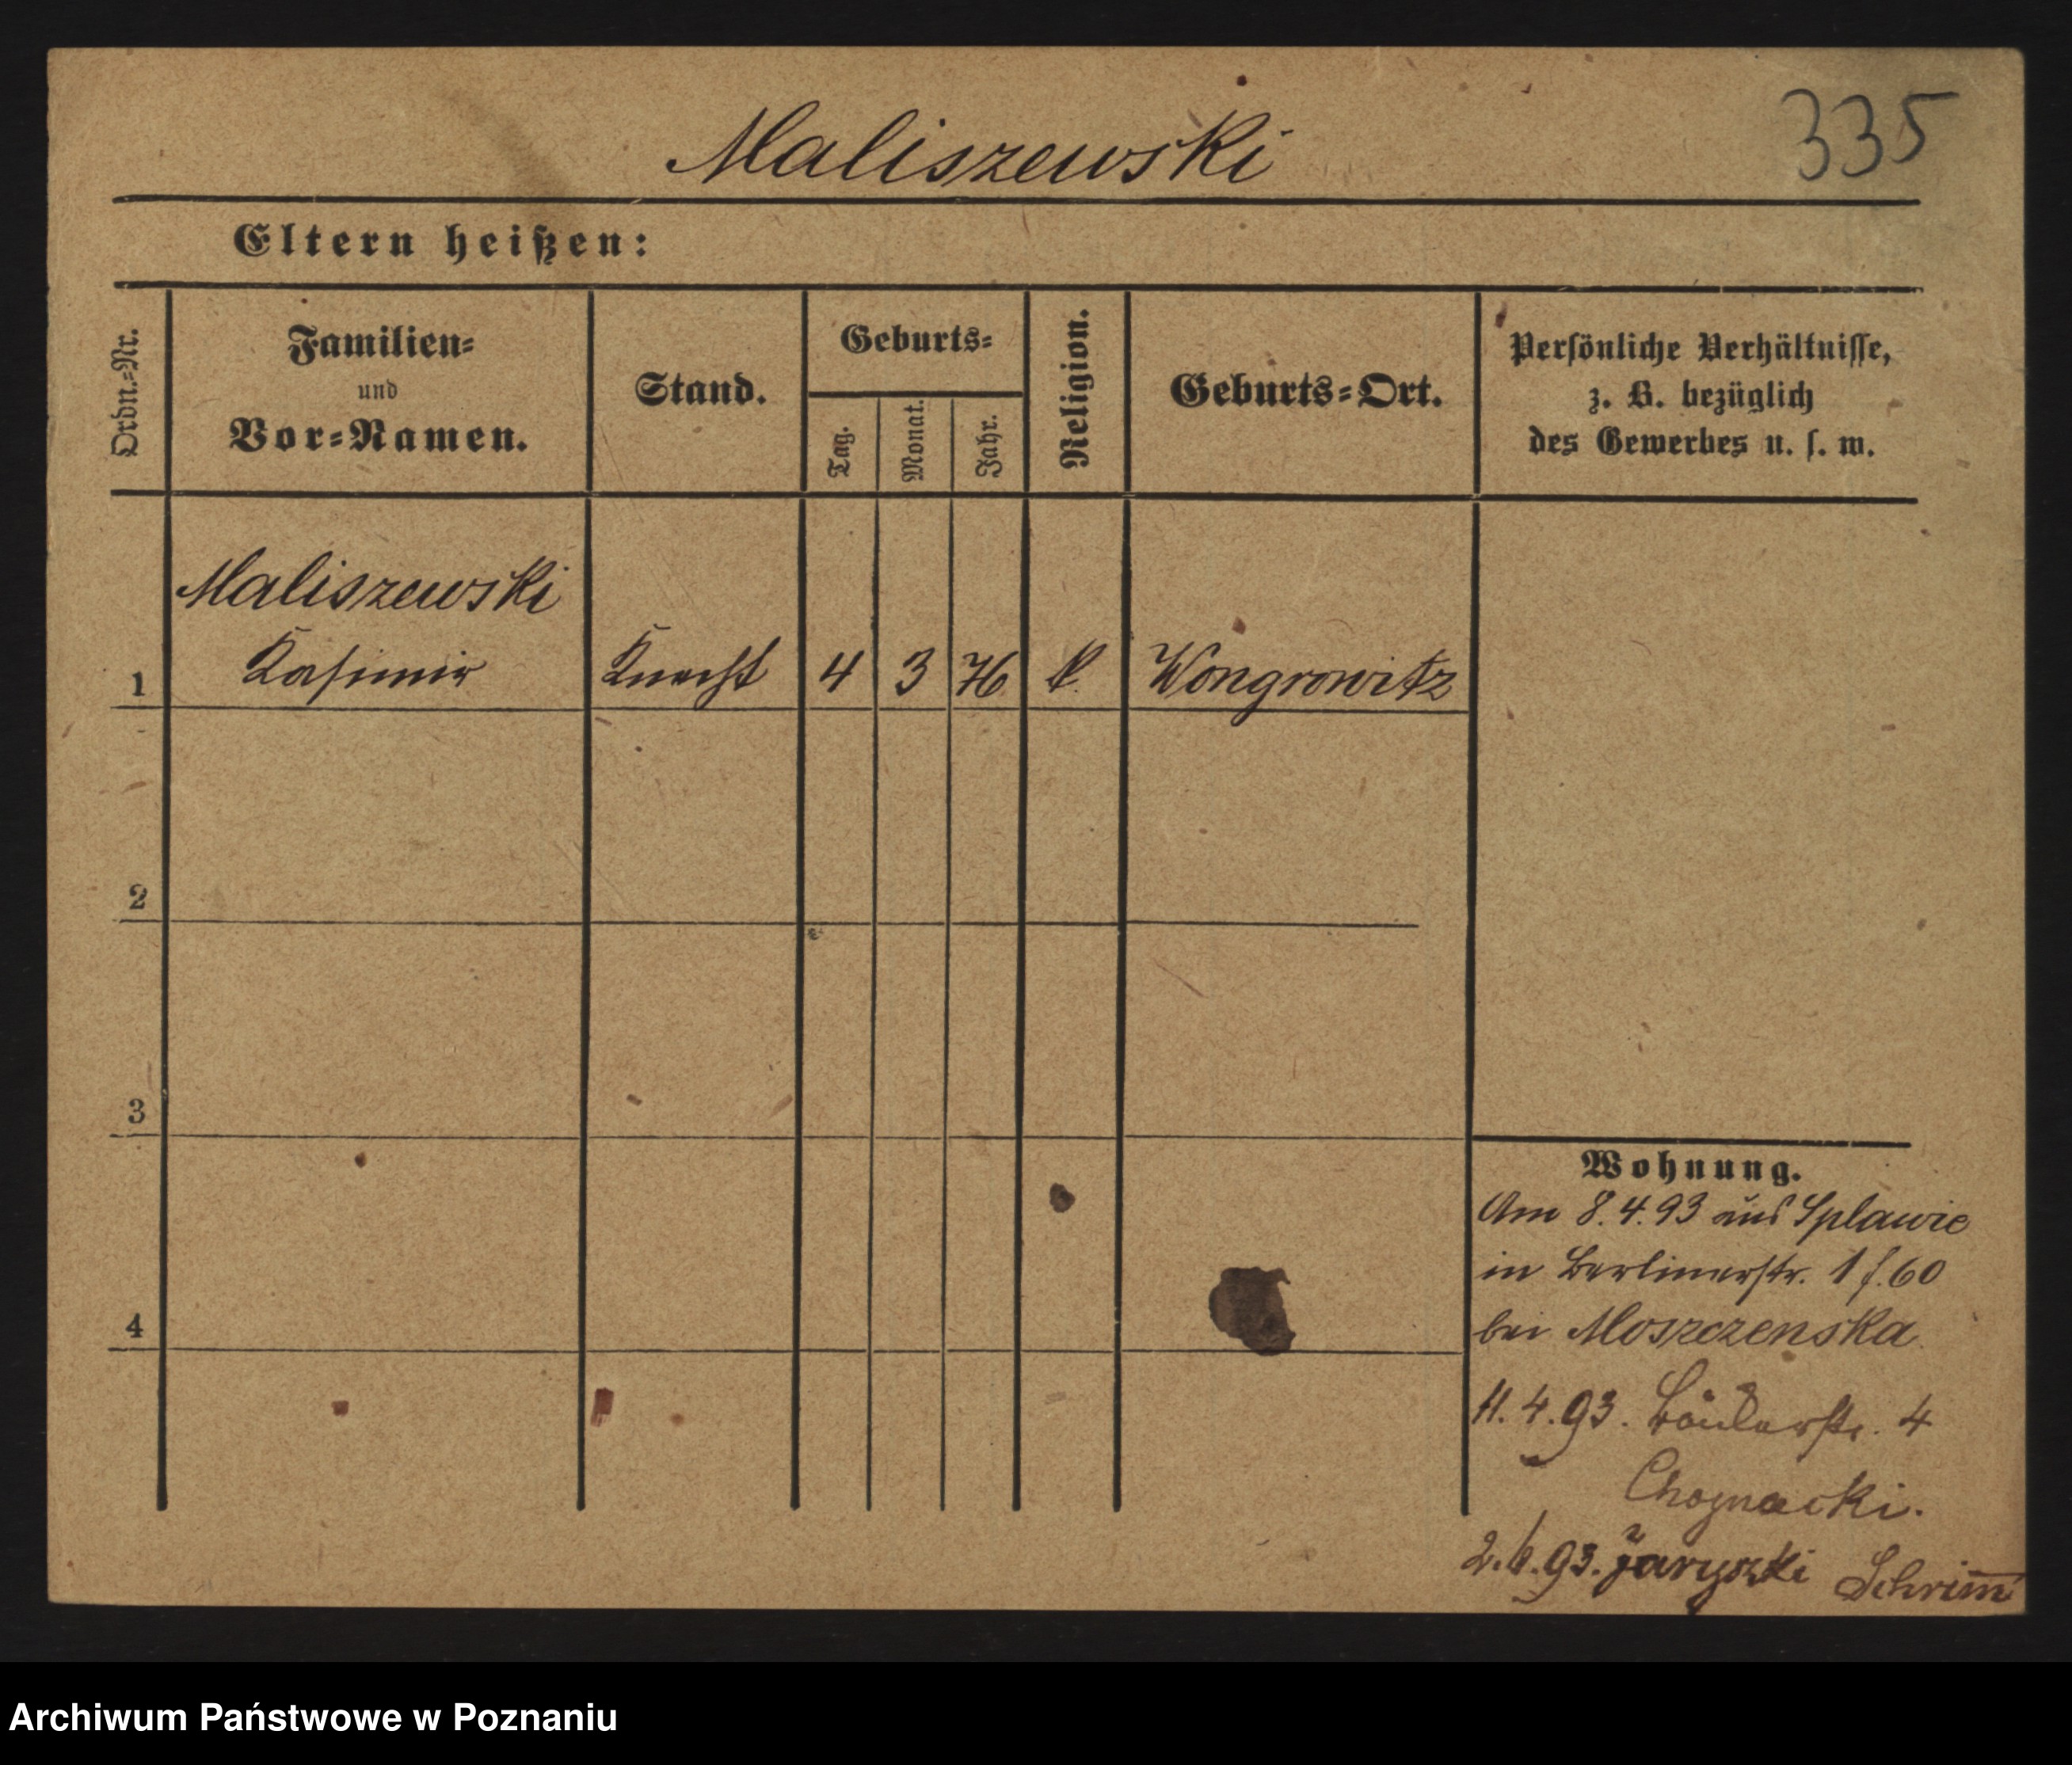 Maliszewski
335
Eltern heißen:
Ordn.=Nr.
Familien=
und
Vor=Namen.
Stand.
Geburts=
Tag.
Monat.
Jahr.
Religion.
Geburts=Ort.
Persönliche Verhältnisse,
z. B. bezüglich
des Gewerbes u. s. w.
Maliszewski
1 Kasimir Knecht 4 3 76 k. Wongrowitz
2
3
4
Wohnung.
Am 8.4.93 aus Splawie
in Berlinerstr. 1 f. 60
bei Moszczenska
11.4.93. Bäckerstr. 4
Choynacki.
2.6.93. Schrimm
Archiwum Państwowe w Poznaniu